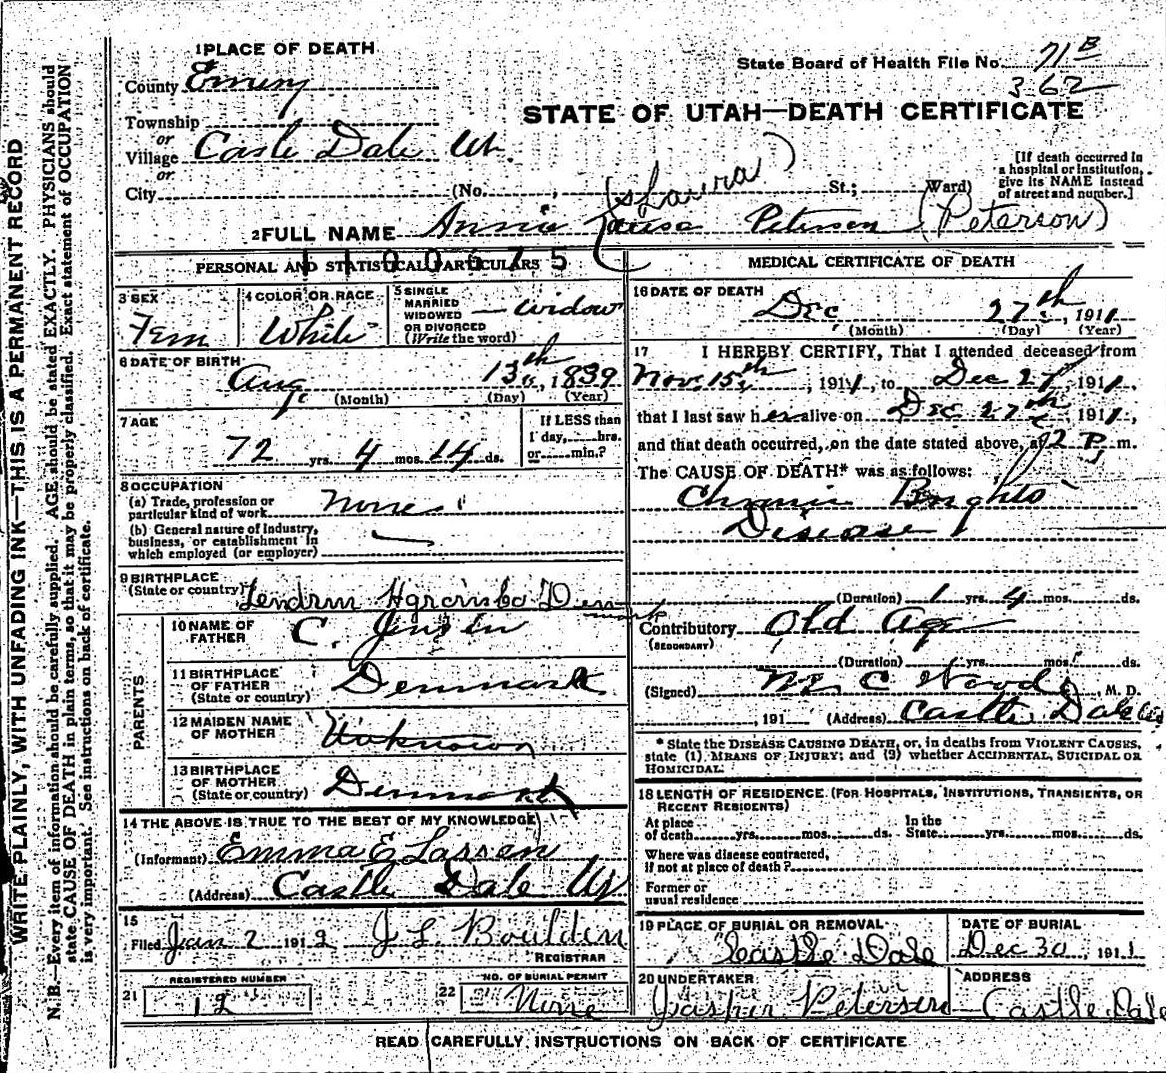 WRITE PLAINLY, WITH UNFADING INK—THIS IS A PERMANENT RECORD
N.B.—Every item of information should be carefully supplied. AGE should be stated EXACTLY. PHYSICIANS should
state CAUSE OF DEATH in plain terms, so that it may be properly classified. Exact statement of OCCUPATION
is very important. See instructions on back of certificate.
1 PLACE OF DEATH
County Emery
Township
or
Village Castle Dale Ut.
or
City (No. , St.; Ward)
State Board of Health File No. 71 B
362
STATE OF UTAH—DEATH CERTIFICATE
[If death occurred in
a hospital or institution,
give its NAME instead
of street and number.]
(Laura)
2 FULL NAME Annie Petersen (Peterson)
PERSONAL AND STATISTICAL PARTICULARS
3 SEX
Fem
4 COLOR OR RACE
White
5 SINGLE
MARRIED
WIDOWED
OR DIVORCED
(Write the word)
widow
6 DATE OF BIRTH
Aug 13th, 1839
(Month) (Day) (Year)
7 AGE
72 yrs. 4 mos. 14 ds.
If LESS than
1 day, hrs.
or min.?
8 OCCUPATION
(a) Trade, profession or
particular kind of work None
(b) General nature of industry,
business, or establishment in
which employed (or employer)
9 BIRTHPLACE
(State or country) Denmark
PARENTS
10 NAME OF
FATHER C. Jensen
11 BIRTHPLACE
OF FATHER
(State or country) Denmark
12 MAIDEN NAME
OF MOTHER Unknown
13 BIRTHPLACE
OF MOTHER
(State or country) Denmark
14 THE ABOVE IS TRUE TO THE BEST OF MY KNOWLEDGE
(Informant) Emma E Larsen
(Address) Castle Dale Ut
15
Filed Jan 2 1912 J L Boulden
REGISTRAR
REGISTERED NUMBER
21 12
NO. OF BURIAL PERMIT
22 None
MEDICAL CERTIFICATE OF DEATH
16 DATE OF DEATH
Dec 27th, 1911
(Month) (Day) (Year)
17 I HEREBY CERTIFY, That I attended deceased from
Nov. 15th, 1911, to Dec 27, 1911,
that I last saw her alive on Dec 27th 1911,
and that death occurred, on the date stated above, at 2 P m.
The CAUSE OF DEATH* was as follows:
Chronic Brights
Disease
(Duration) 1 yrs. 4 mos. ds.
Contributory Old Age
(SECONDARY)
(Duration) yrs. mos. ds.
(Signed) M C Woods, M. D.
, 191 (Address) Castle Dale
* State the DISEASE CAUSING DEATH, or, in deaths from VIOLENT CAUSES,
state (1) MEANS OF INJURY; and (2) whether ACCIDENTAL, SUICIDAL OR
HOMICIDAL.
18 LENGTH OF RESIDENCE (FOR HOSPITALS, INSTITUTIONS, TRANSIENTS, OR
RECENT RESIDENTS)
At place In the
of death yrs. mos. ds. State yrs. mos. ds.
Where was disease contracted,
if not at place of death?
Former or
usual residence
19 PLACE OF BURIAL OR REMOVAL
Castle Dale
DATE OF BURIAL
Dec 30, 1911
20 UNDERTAKER
Jasper Petersen
ADDRESS
Castle Dale
READ CAREFULLY INSTRUCTIONS ON BACK OF CERTIFICATE